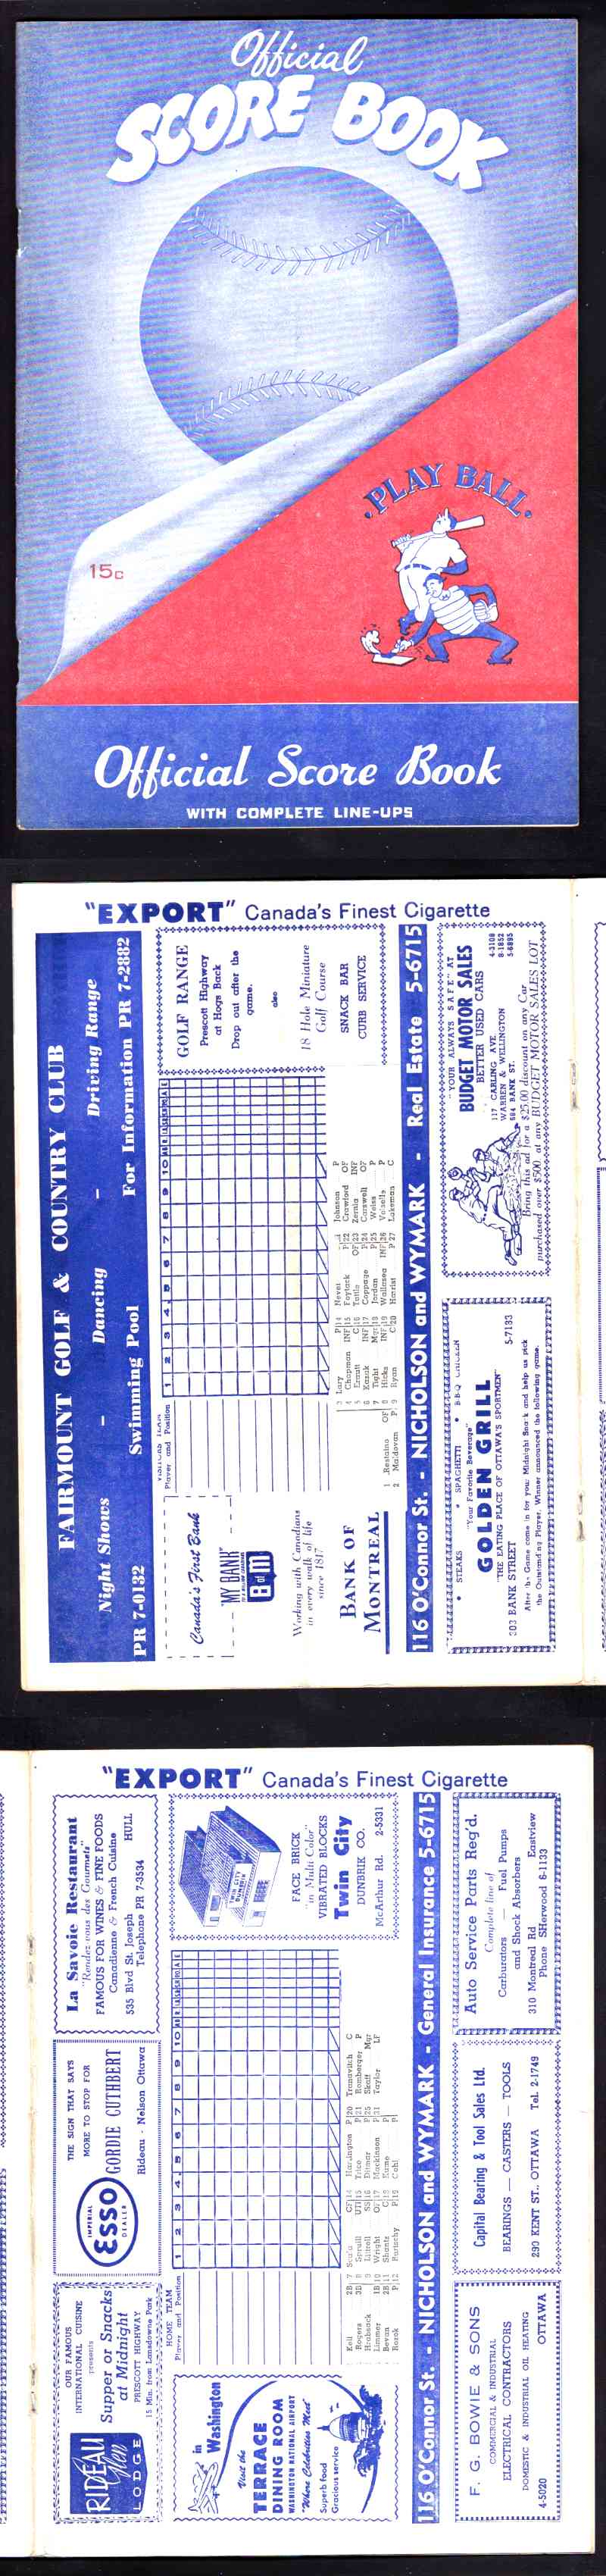 Official
SCORE BOOK
PLAY BALL.
15c
Official Score Book
WITH COMPLETE LINE-UPS
"EXPORT" Canada's Finest Cigarette
FAIRMOUNT GOLF & COUNTRY CLUB
Night Shows – Dancing – Driving Range
PR 7-0132 Swimming Pool For Information PR 7-2882
Canada's First Bank
"MY BANK"
B of M
Working with Canadians
in every walk of life
since 1817
BANK OF
MONTREAL
VISITORS TEAM
Player and Position
1 2 3 4 5 6 7 8 9 10
1 Restaino OF
2 Moldovan P
3 Lary P
4 Chapman INF
5 Erautt C
6 Kazak INF
7 Tight Mgr
8 Hicks INF
9 Ryan C
14 Never
15 Foytack P
16 Tuttle OF
17 Coppage P
18 Jordan P
19 Wallaesa INF
20 Harrist P
Johnson P
22 Crawford OF
23 Zernia INF
24 Carswell OF
25 Weiss P
27 Lakeman C
GOLF RANGE
Prescott Highway
at Hogs Back
Drop out after the
game.
also
18 Hole Miniature
Golf Course
SNACK BAR
CURB SERVICE
116 O'Connor St. - NICHOLSON and WYMARK - Real Estate 5-6715
• STEAKS • SPAGHETTI • B-B-Q CHICKEN
"Your Favorite Beverage"
GOLDEN GRILL
"THE EATING PLACE OF OTTAWA'S SPORTSMEN"
203 BANK STREET 5-7133
After the Game come in for your Midnight Snack and help us pick
the Outstanding Player. Winner announced the following game.
"YOUR ALWAYS SAFE" AT
BUDGET MOTOR SALES
BETTER USED CARS
117 CARLING AVE. 4-3108
WARREN & WELLINGTON 8-1852
984 BANK ST. 5-6895
Bring this ad for a $25.00 discount on any Car
purchased over $500. at any BUDGET MOTOR SALES LOT
"EXPORT" Canada's Finest Cigarette
RIDEAU
Glen
LODGE
OUR FAMOUS
INTERNATIONAL CUISINE
presents
Supper or Snacks
at Midnight
PRESCOTT HIGHWAY
15 Min. from Lansdowne Park
IMPERIAL
ESSO
DEALER
THE SIGN THAT SAYS
MORE TO STOP FOR
GORDIE CUTHBERT
Rideau - Nelson Ottawa
La Savoie Restaurant
"Rendez-vous des Gourmets"
FAMOUS FOR WINES & FINE FOODS
Canadienne & French Cuisine
535 Blvd St. Joseph HULL
Telephone PR 7-3534
in
Washington
Visit the
TERRACE
DINING ROOM
WASHINGTON NATIONAL AIRPORT
"Where Celebrities Meet"
Superb food
Gracious service
HOME TEAM
Player and Position
1 2 3 4 5 6 7 8 9 10
Kell 2B
Rogers 3B
Hrabcsak
Limmer 1B
Bevan 2B
Rozek P
7 Scala CF
9 Littrell SS
10 Wright OF
11 Shantz C
12 Portschy P
14 Harrington P
15 Trice P
16 Ditmar P
17 Mackinson P
18 Kume P
20 Tramavitch C
21 Romberger P
25 Skaff Mgr
31 Taylor LF
FACE BRICK
"in Multi Color"
VIBRATED BLOCKS
Twin City
DUNBRIK CO.
McArthur Rd. 2-5331
116 O'Connor St. - NICHOLSON and WYMARK - General Insurance 5-6715
F. G. BOWIE & SONS
COMMERCIAL & INDUSTRIAL
ELECTRICAL CONTRACTORS
DOMESTIC & INDUSTRIAL OIL HEATING
4-5020 OTTAWA
Capital Bearing & Tool Sales Ltd.
BEARINGS — CASTERS — TOOLS
290 KENT ST., OTTAWA Tel. 2-1749
Auto Service Parts Reg'd.
Complete line of
Carburators — Fuel Pumps
and Shock Absorbers
310 Montreal Rd Eastview
Phone SHerwood 6-1133